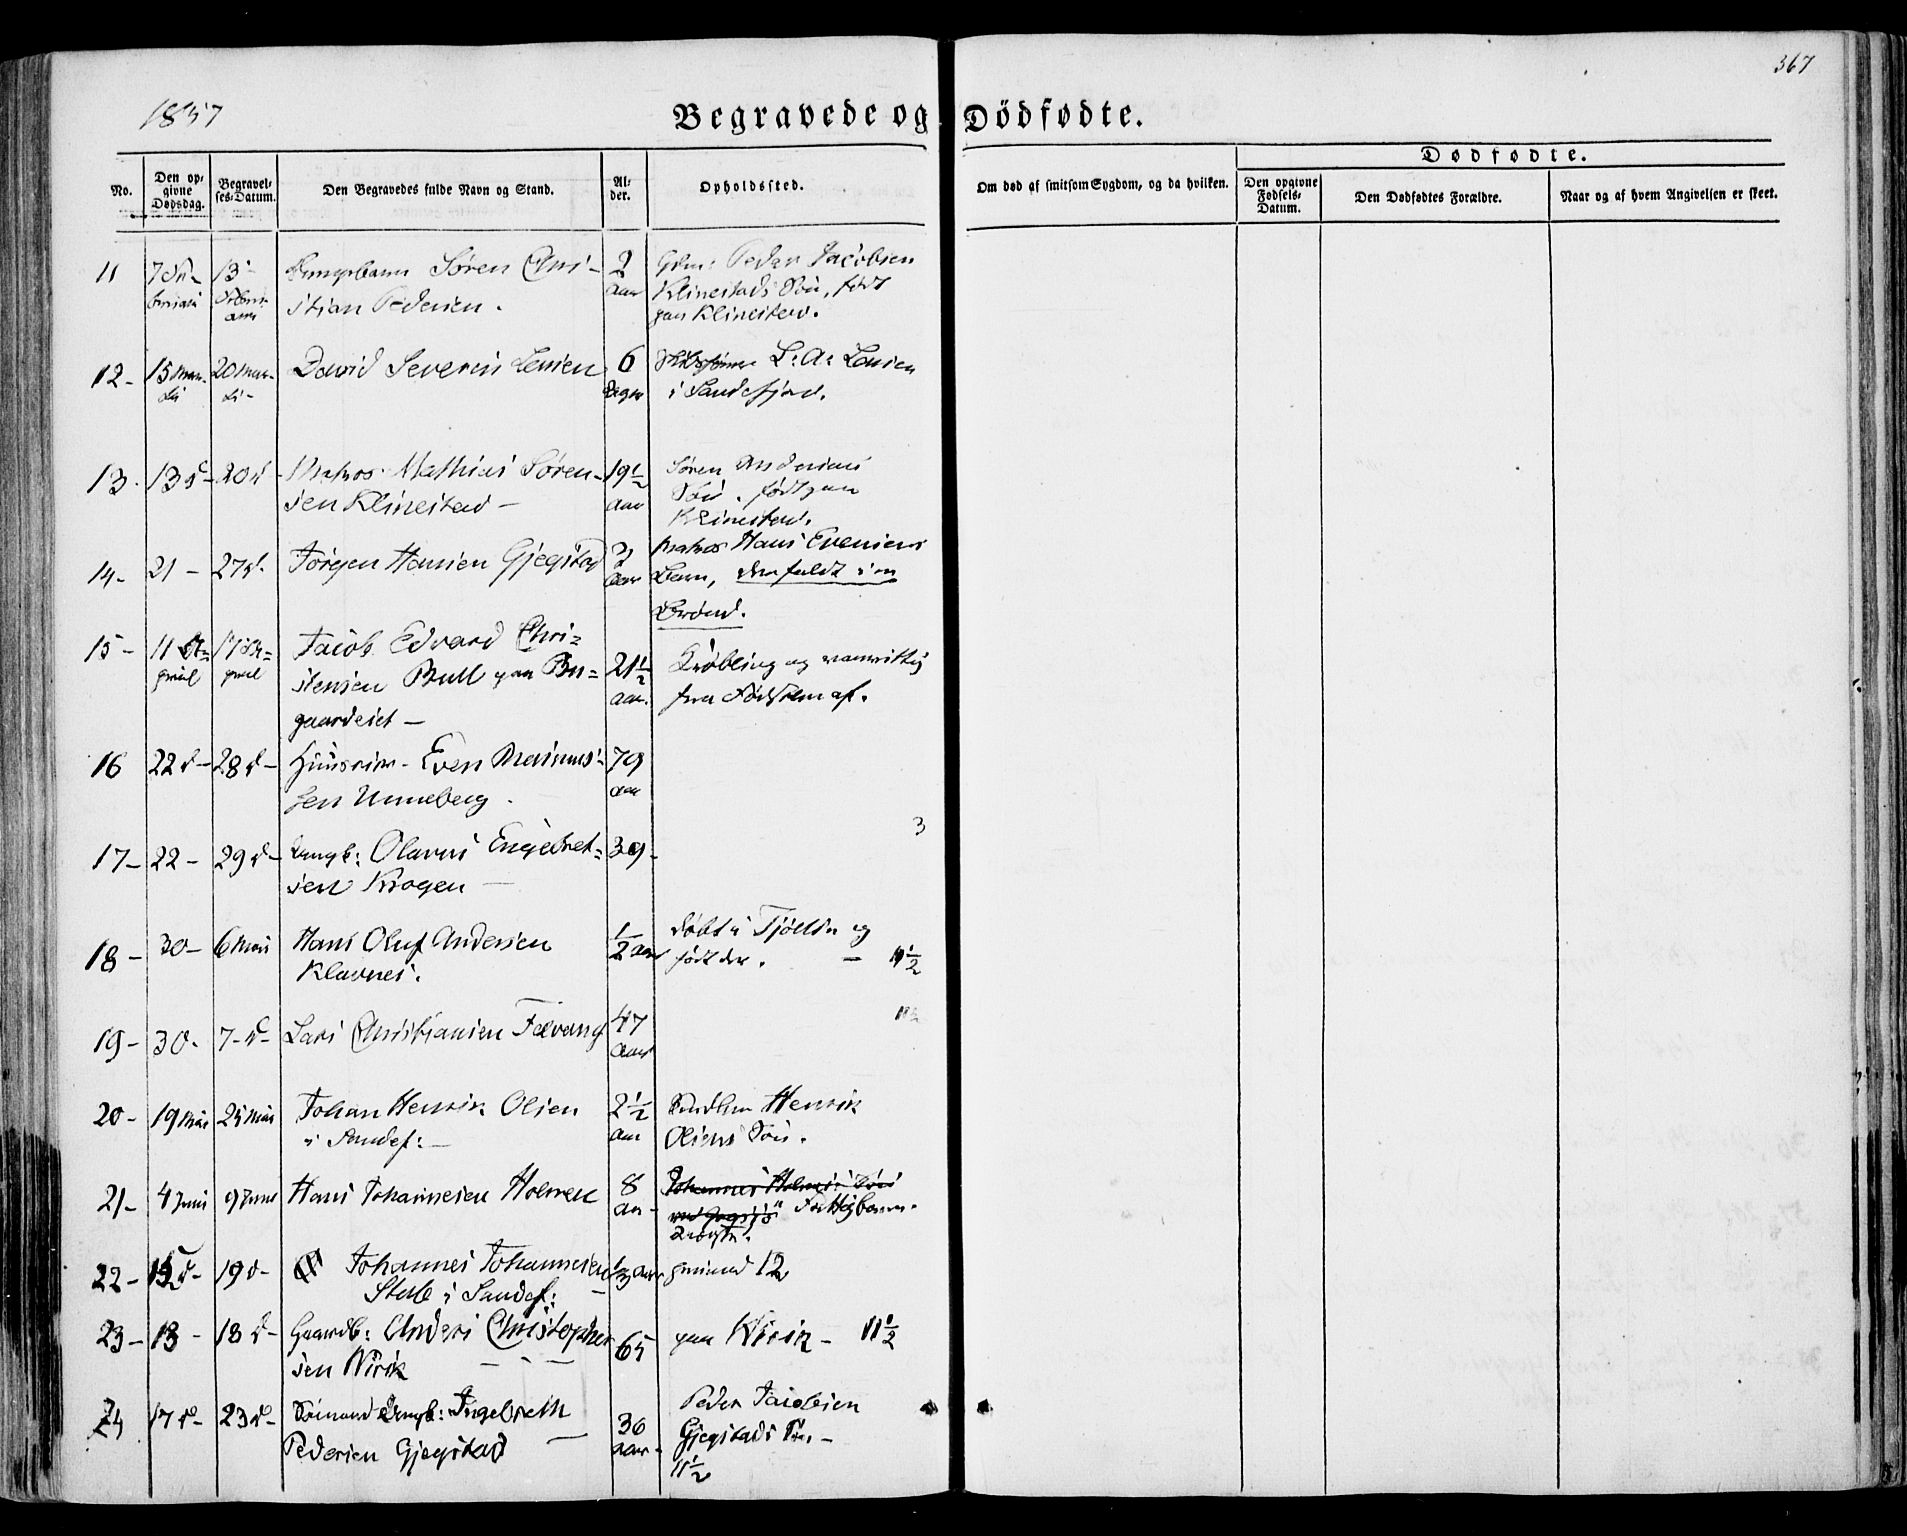 367
1857
Begravede og Dödfødte.
No.
Den opgivne Dødsdag.
Begravelses-Datum.
Den Begravedes fulde Navn og Stand.
Alder.
Opholdssted.
Om død af smitsom Sygdom, og da hvilken.
Dødfødte.
Den opgivne Fødsels-Datum.
Den Dødfødtes Forældre.
Naar og af hvem Angivelsen er skeet.
11 7de 13 Søren Chri- 2 Peder Jacobsen
stian Pedersen. Aar Klinestads Søn, født
paa Klinestad.
12- 15 Mar- 20 Mar- David Severin Larsen 6 L: A: Larsen
ti ti- Dage i Sandefjord.
13. 13 d- 20 d- Matros Mathias Søren- 19½ Søren Andersens
sen Klinestad - Aar Søn. født paa
Klinestad.
14- 21 - 27 d. Jörgen Hansen Gjegstad 2 Matros Hans Evensens
Aar Barn, der faldt i en
Brönd.
15- 11 A- 17 A- Jacob Edvard Chri- 21½ Krøbling og vanvittig
pril pril stensen Bull paa Bu- Aar. fra Födselen af.
gaardeiet -
16 22 d- 28 d- Huusm- Even Rasmus- 79
sen Unneberg. Aar
17- 22- 29 d- Ungk: Olavus Engebret- 39-
sen Krogen - 3
18- 30- 6 Mai Hans Oluf Andersen ½ Aar döbt i Tjölling og
Klavnes. født der. - 11½
19- 30- 7-d- Lars Christiansen Fævang 47
Aar
20- 19 Mai 25 Mai Johan Henrik Olsen 2½ Henrik
i Sandef:- Aar Olsens Søn.
21- 4 Juni 9 Juni Hans Johannesen Holmen 8 Johannes
Aar-
22- 19 d- Johannes Johannesen Aar 12
Stub i Sandef: -
23- 13 - 18 d- Gaardb: Anders Christopher- 65 paa Wirik - 11½
sen Wirik
24 17 d- 23 d- Sömand Ungk: Ingebreth 36 Peder Jacobsen
Pedersen Gjegstad Aar- Gjegstads Søn. -
11½